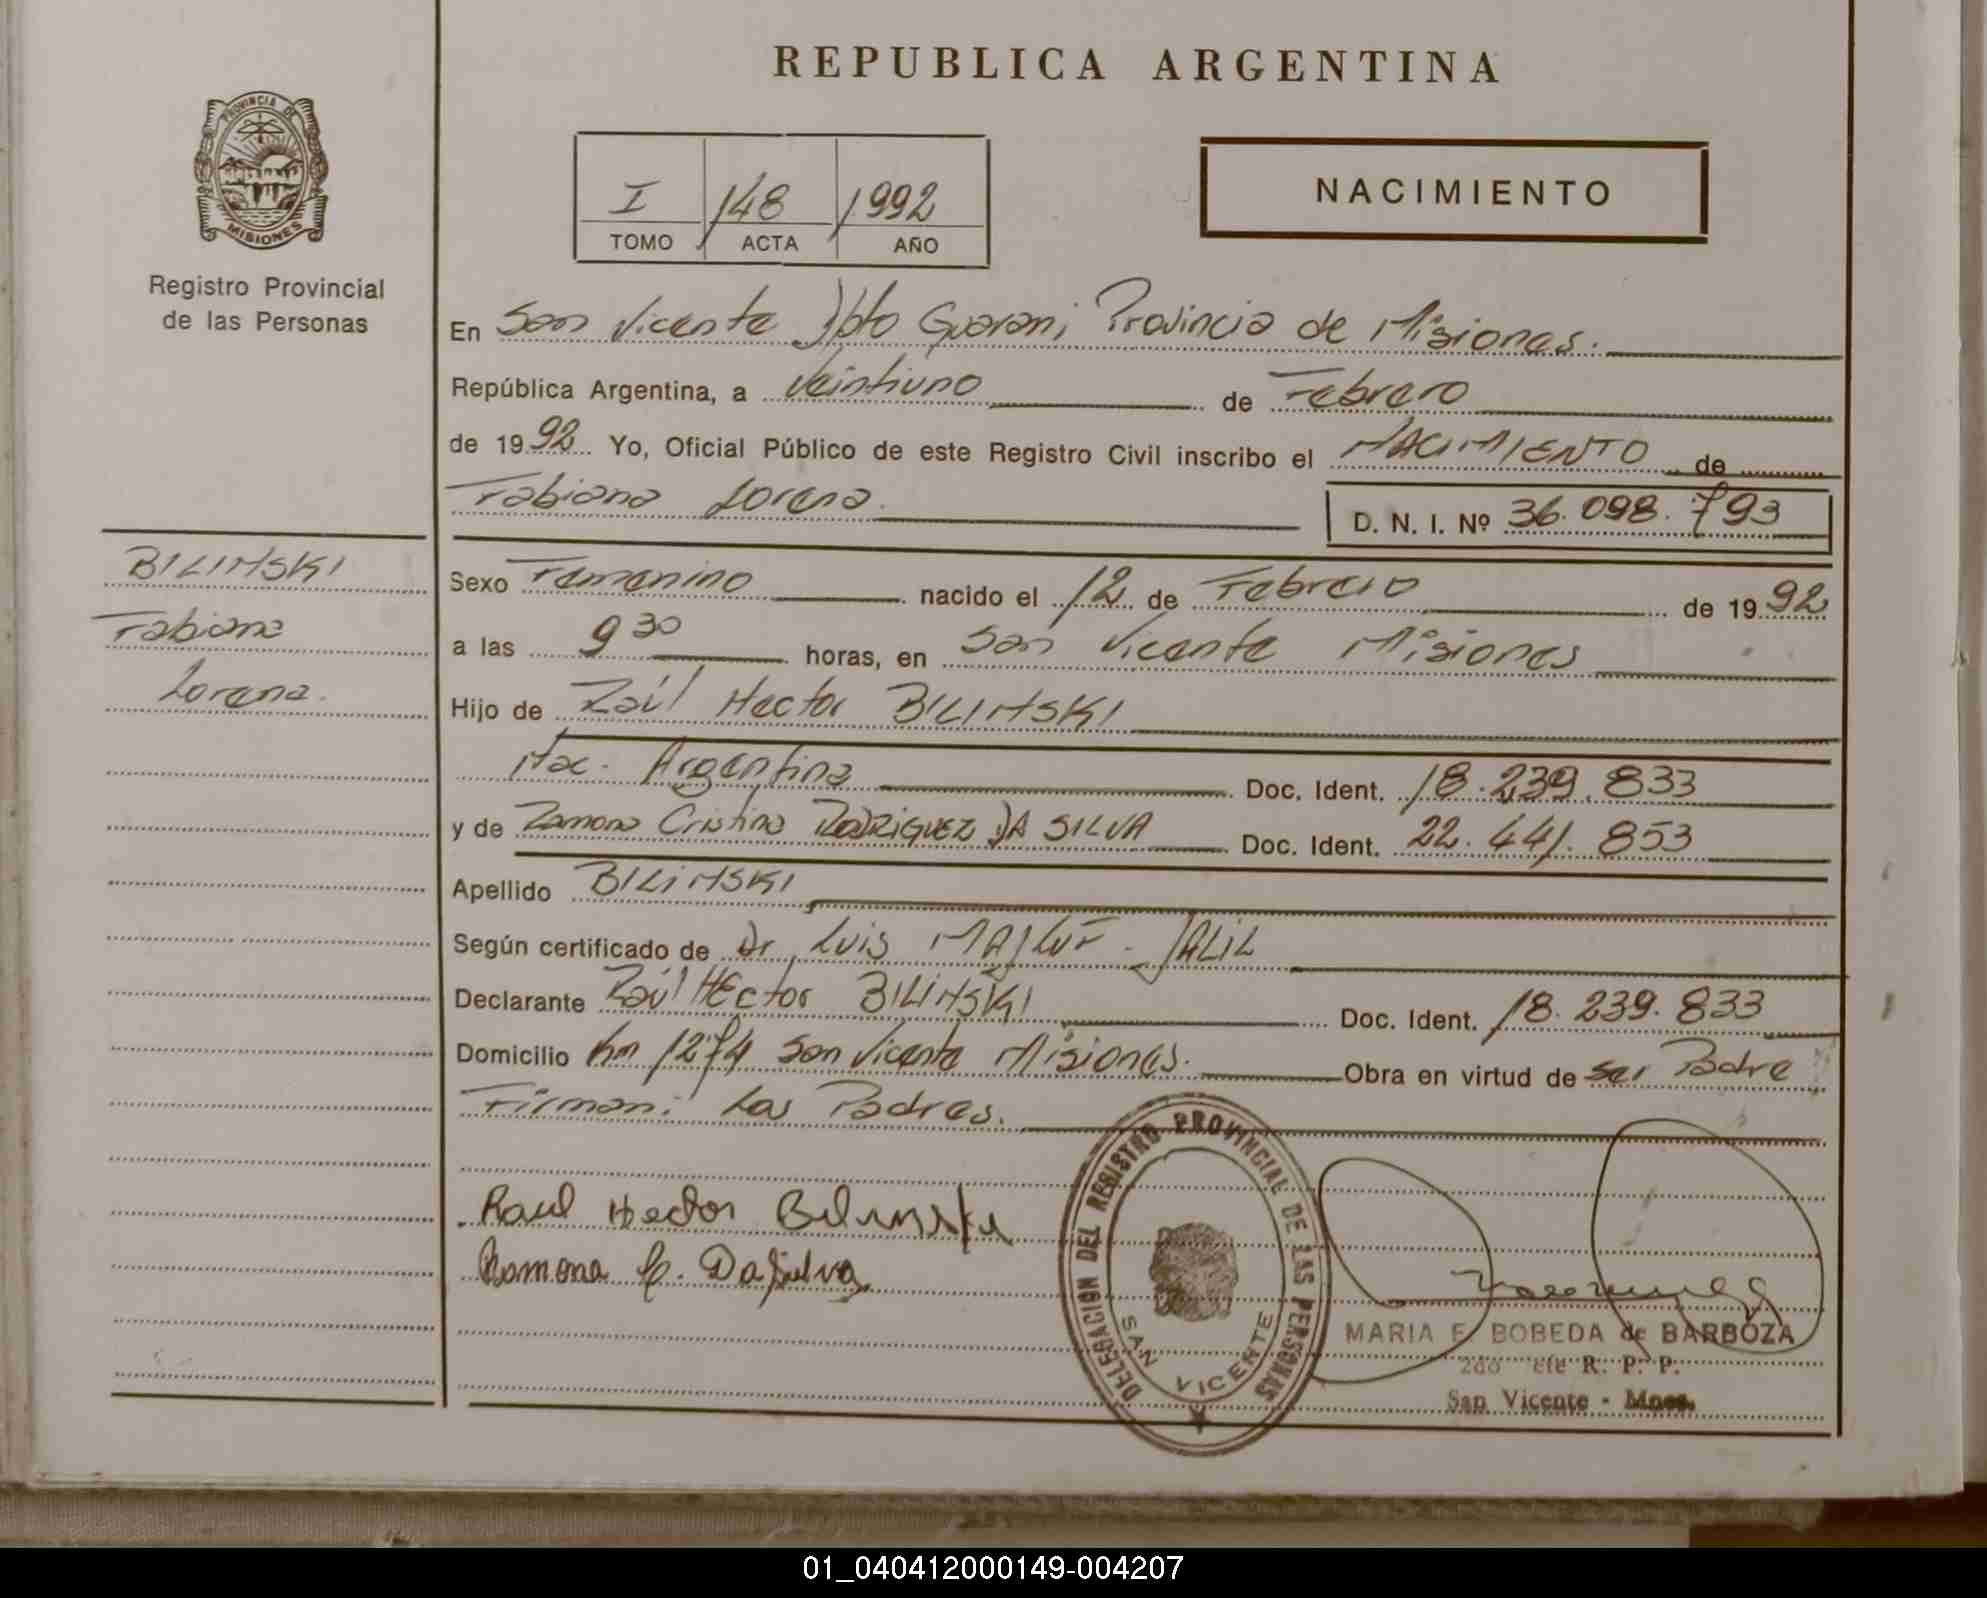 REPUBLICA ARGENTINA
PROVINCIA DE MISIONES
Registro Provincial
de las Personas
I 148 1992
TOMO ACTA AÑO
NACIMIENTO
En San Vicente Dpto Guarani Provincia de Misiones.
República Argentina, a Veintiuno de Febrero
de 1992 Yo, Oficial Público de este Registro Civil inscribo el NACIMIENTO de
Fabiana Lorena.
D. N. I. Nº 36.098.793
BILINSKI
Fabiana
Lorena.
Sexo Femenino nacido el 12 de Febrero de 1992
a las 9 30 horas, en San Vicente Misiones
Hijo de Raúl Hector BILINSKI
Nac. Argentina Doc. Ident. 18.239.833
y de Ramona Cristina RODRIGUEZ DA SILVA Doc. Ident. 22.441.853
Apellido BILINSKI
Según certificado de Dr. Luis MAJLUF - JALIL
Declarante Raúl HEctor BILINSKI Doc. Ident. 18.239.833
Domicilio Km 1274 San Vicente Misiones. Obra en virtud de ser Padre
Firman: Los Padres.
Raul Hector Bilinski
Ramona C. Da Silva
DELEGACION DEL REGISTRO PROVINCIAL DE LAS PERSONAS
SAN VICENTE
MARIA E. BOBEDA de BARBOZA
2do R. P. P.
San Vicente - Mnes.
01_040412000149-004207